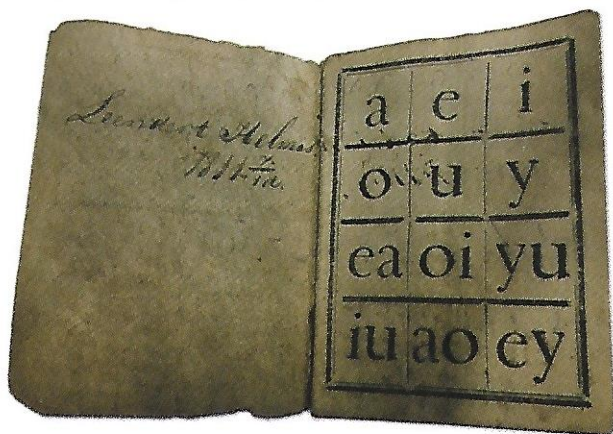 Leendert
a e i
o u y
ea oi yu
iu ao ey